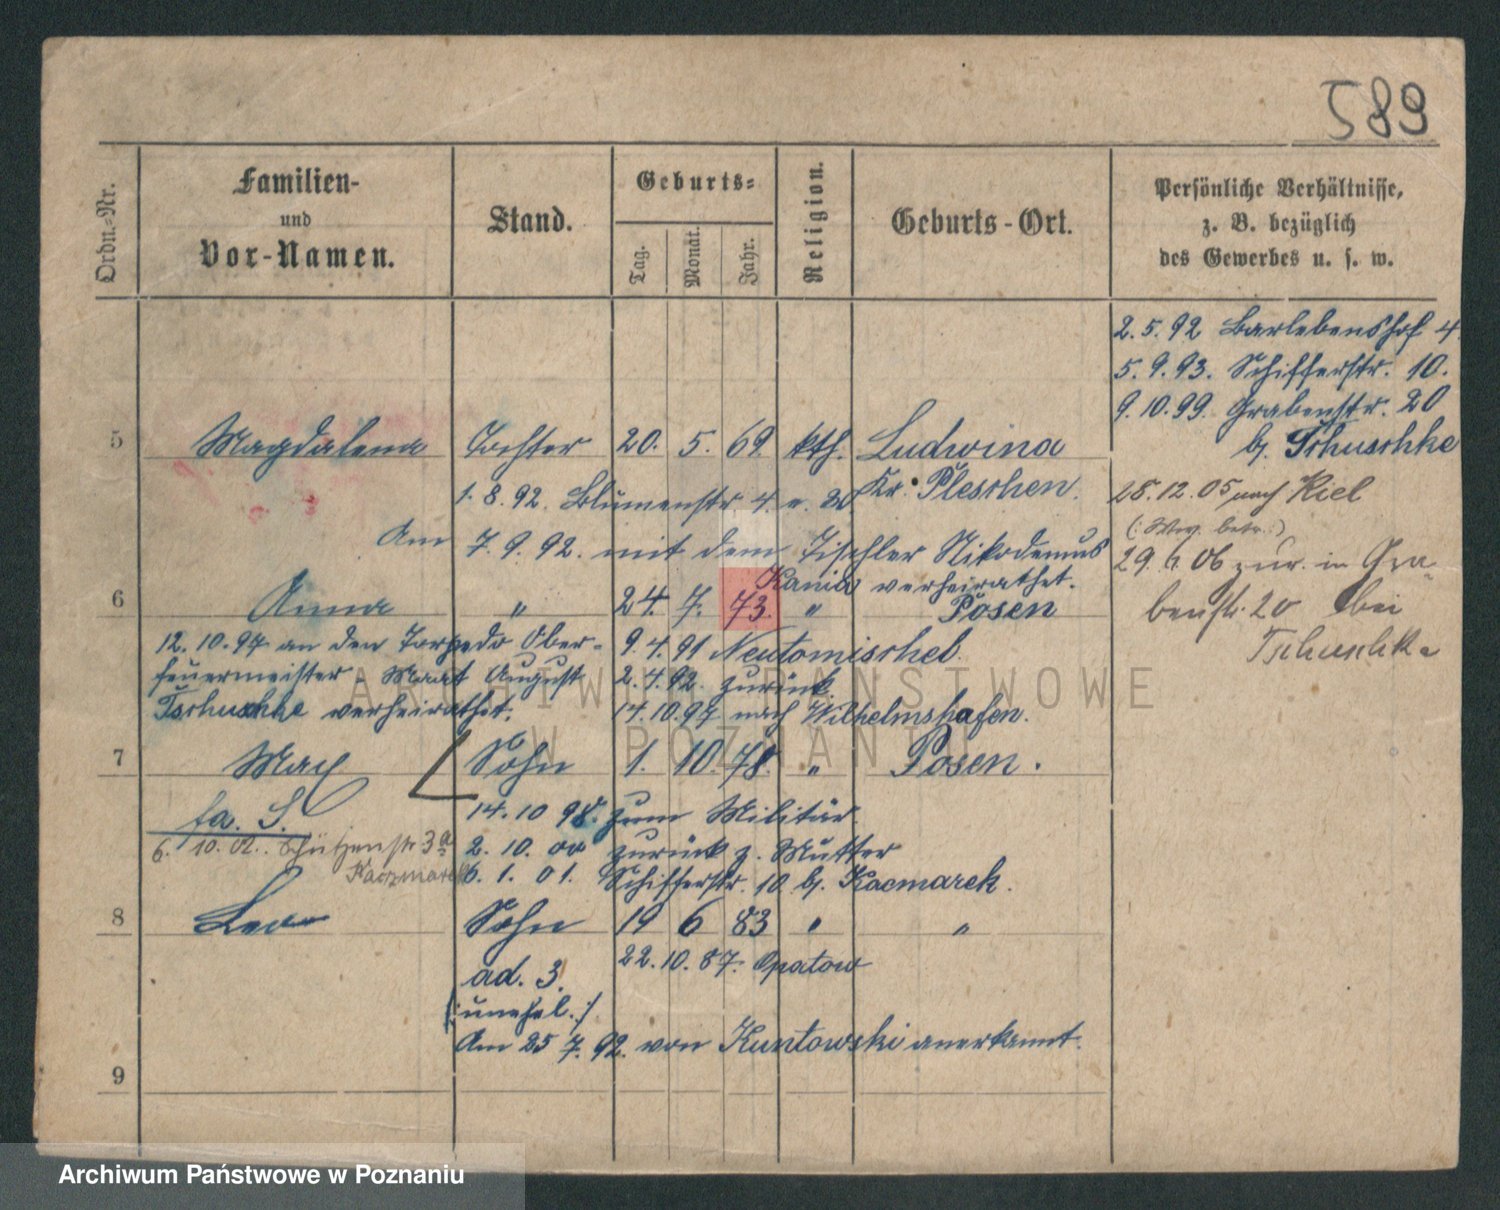 589
Ordn.-Nr.
Familien-
und
Vor-Namen.
Stand.
Geburts-
Tag.
Monat.
Jahr.
Religion.
Geburts-Ort.
Persönliche Verhältnisse,
z. B. bezüglich
des Gewerbes u. s. w.
2.5.92 Barlebenshof 4.
5.9.93. Schifferstr. 10.
9.10.99. Grabenstr. 20
b. Tschuschke
5 Magdalena Tochter 20. 5. 69. kth. Ludwina
Kr. Pleschen.
1.8.92. Blumenstr 4. v. 20
28.12.05 nach Kiel
Am 7.9.92. mit dem Tischler Nikodemus
Kania verheirathet.
29. 6. 06 zur. in Gra-
benstr. 20 bei
Tschuschke
6 Anna " 24. 7. 73. " Posen
12.10.97 an den Torpedo Ober-
feuermeister Maat August
Tschuschke verheirathet.
9.4.91 Neutomischel.
2.4.92. zurück.
14.10.97 nach Wilhelmshafen.
7 Max Sohn 1. 10. 78. " Posen.
fa. S.
6. 10. 02. Schützenstr. 3a
Kaczmarek
14.10 98. zum Militär.
2. 10. 00 zurück z. Mutter
6. 1. 01. Schifferstr. 10 b. Kacmarek.
8 Leo Sohn 19 6 83 " "
22.10.87. Opatow
ad. 3.
(: unehel. :)
Am 25 7. 92. von Kuntowski anerkannt.
9
ARCHIWUM PAŃSTWOWE
W POZNANIU
Archiwum Państwowe w Poznaniu